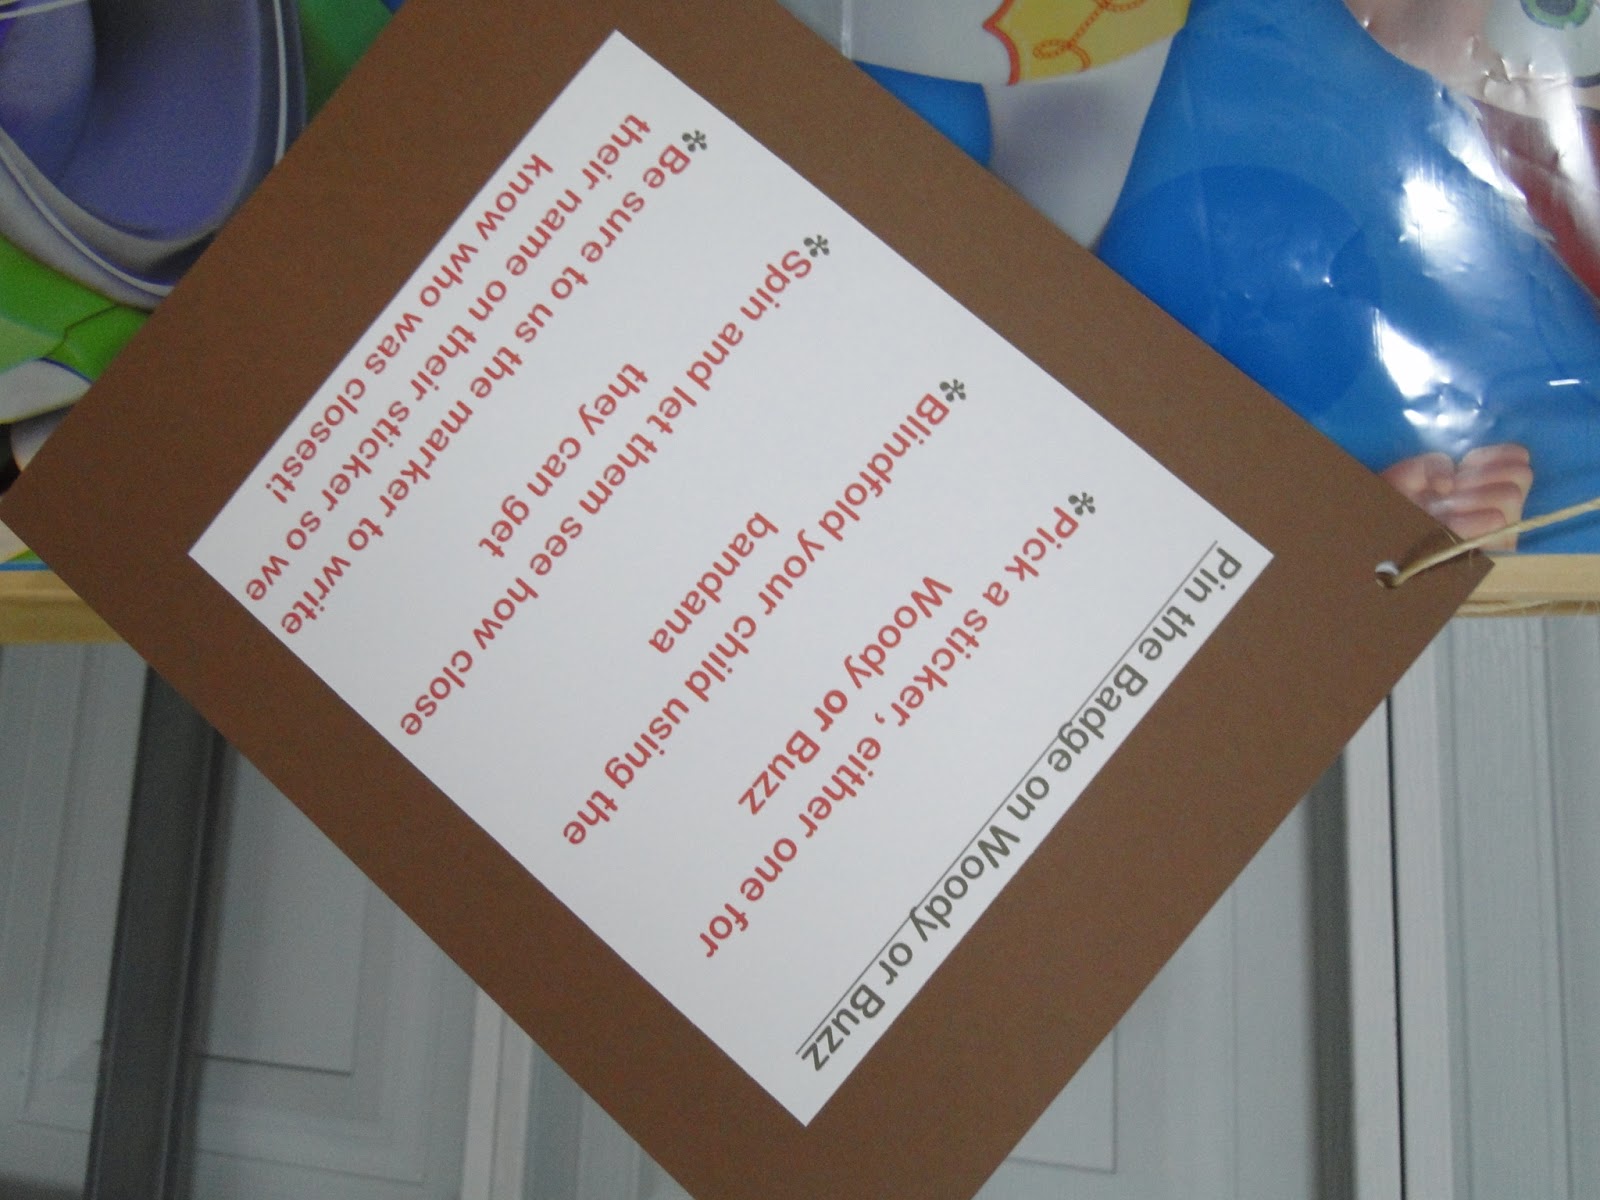 Pin the Badge on Woody or Buzz
*Pick a sticker, either one for
Woody or Buzz
*Blindfold your child using the
bandana
*Spin and let them see how close
they can get
*Be sure to us the marker to write
their name on their sticker so we
know who was closest!